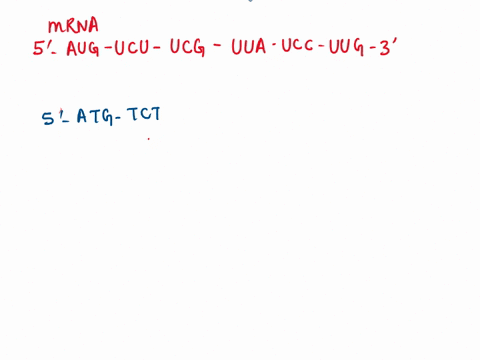 mRNA
5'- AUG - UCU - UCG - UUA - UCC - UUG - 3'
5'- ATG - TCT